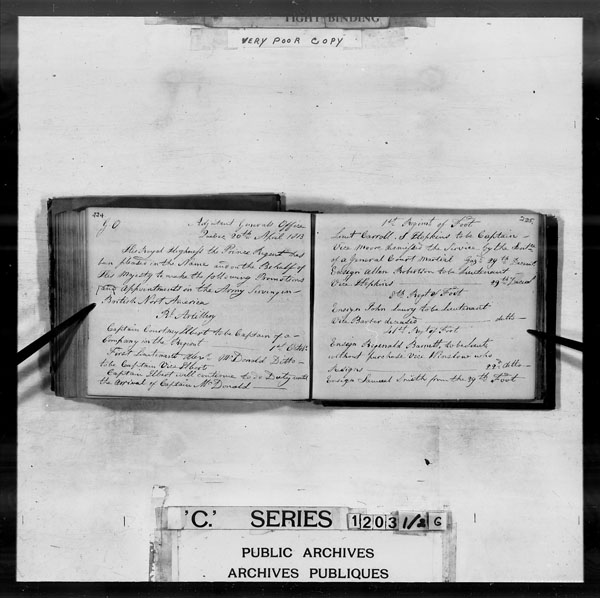 TIGHT BINDING
VERY POOR COPY
224
G O
Adjutant Generals Office
Quebec 20th April 1813
His Royal Highness the Prince Regent has
been pleased in the Name and on the Behalf of
His Majesty to make the following Promotions
and appointments in the Army Serving in
British Nort America
Rl Artillery
Captain Courtnay Ilbert to be Captain of a
Company in the Regent 1st Octr
First Lieutenant Alexr McDonald Ditto
to be Captain Vice Ilbert
Captain Ilbert will continue to do Duty until
the arrival of Captain McDonald
225
1st Regiment of Foot
Lieut Carroll A Hopkins to be Captain
Vice Moor dismissed the Service by the Sentce
of a General Court Martial 29th Decemr
Ensign Allan Robertson to be Lieutenant
Vice Hopkins 29th Decemr
8th Regt of Foot
Ensign John Lowry to be Lieutenant
Vice Barber deceased ditto
41st Regt of Foot
Ensign Reginald Burnett to be Lieut
without purchase Vice who
Resigns 22d ditto
Ensign Samuel Smith from the 29th Foot
'C.' SERIES 1203 1/2 G
PUBLIC ARCHIVES
ARCHIVES PUBLIQUES